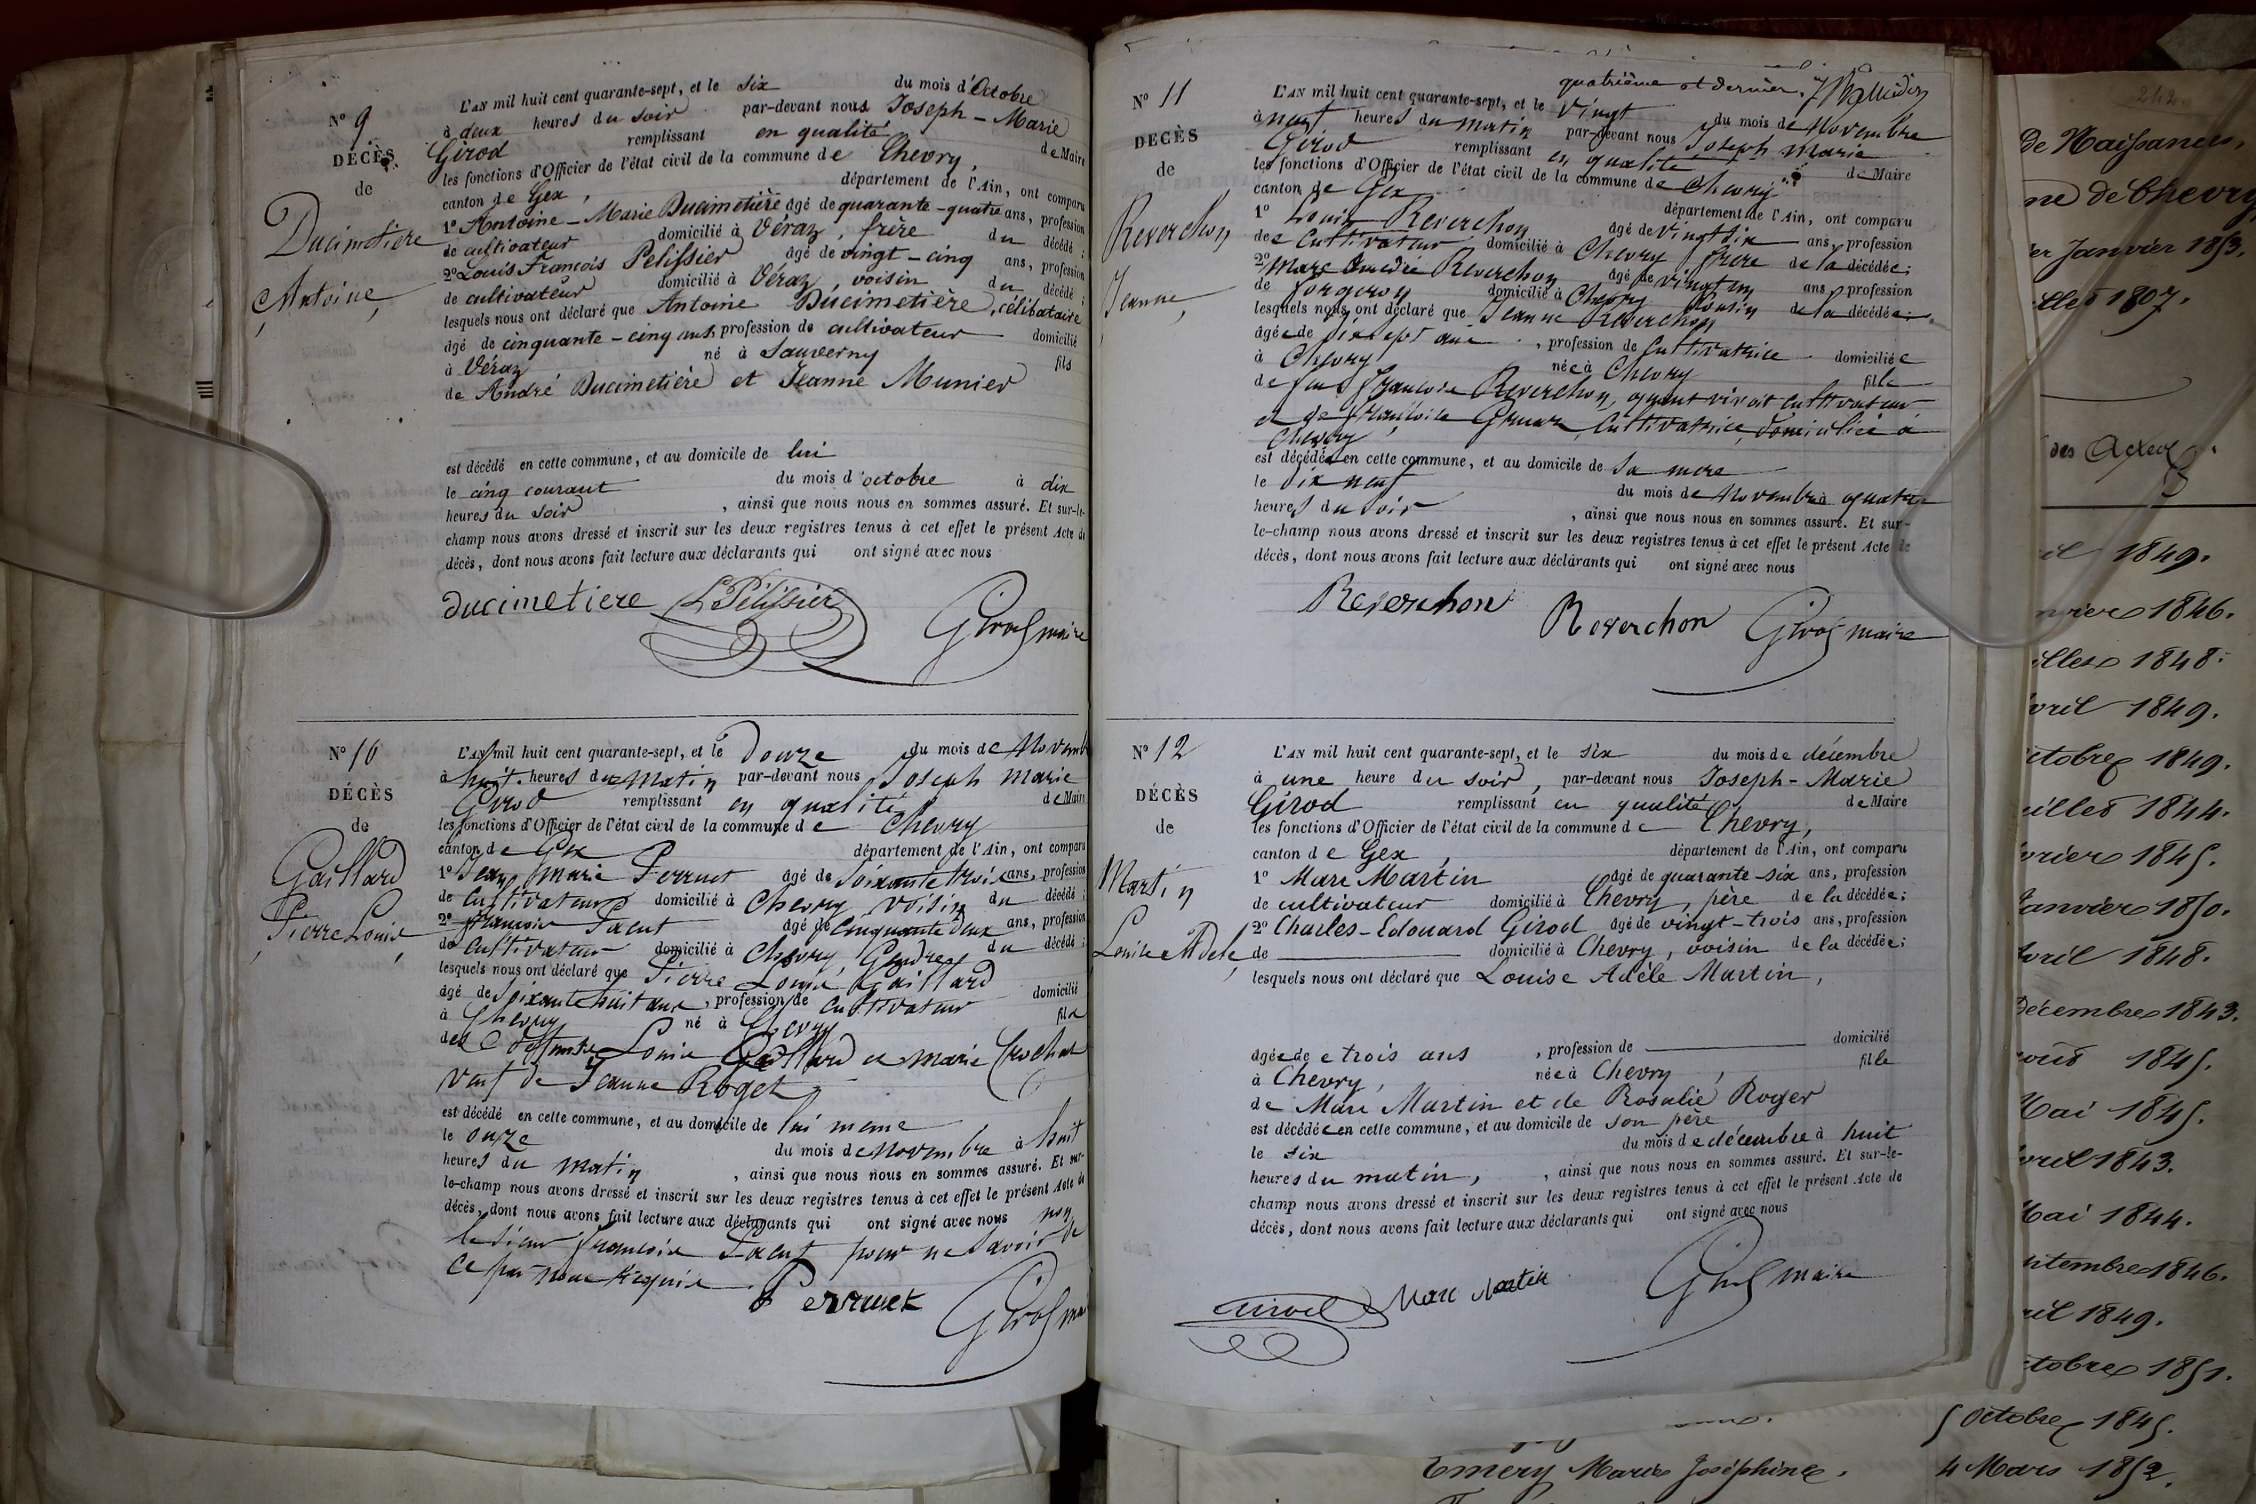 N° 9
DÉCÈS
de
Ducimetière
Antoine,
L'AN mil huit cent quarante-sept, et le six du mois d'Octobre
à deux heures du soir par-devant nous Joseph-Marie
Girod remplissant en qualité de Maire
les fonctions d'Officier de l'état civil de la commune de Chevry,
canton de Gex, département de l'Ain, ont comparu
1° Antoine-Marie Ducimetière âgé de quarante-quatre ans, profession
de cultivateur domicilié à Véraz, frère du décédé;
2° Louis François Pelissier âgé de vingt-cinq ans, profession
de cultivateur domicilié à Véraz, voisin du décédé;
lesquels nous ont déclaré que Antoine Ducimetière, célibataire
âgé de cinquante-cinq ans, profession de cultivateur domicilié
à Véraz né à Sauverny fils
de André Ducimetière et Jeanne Munier
est décédé en cette commune, et au domicile de lui
le cinq courant du mois d'octobre à dix
heures du soir, ainsi que nous nous en sommes assuré. Et sur-le-
champ nous avons dressé et inscrit sur les deux registres tenus à cet effet le présent Acte de
décès, dont nous avons fait lecture aux déclarants qui ont signé avec nous
Ducimetiere L. Pélissier Girod maire
N° 10
DÉCÈS
de
Gaillard
Pierre Louis,
L'AN mil huit cent quarante-sept, et le Douze du mois de Novemb
à huit heures du Matin par-devant nous Joseph Marie
Girod remplissant en qualité de Maire
les fonctions d'Officier de l'état civil de la commune de Chevry
canton de Gex département de l'Ain, ont comparu
1° Jean Marie Perruet âgé de Soixante trois ans, profession
de Cultivateur domicilié à Chevry, voisin du décédé;
2° françois âgé de Cinquante deux ans, profession
de Cultivateur domicilié à Chevry, Gendre du décédé;
lesquels nous ont déclaré que Pierre Louis Gaillard
âgé de soixante huit ans, profession de cultivateur domicilié
à Chevry né à Chevry fils
des défunts Louis Gaillard et marie Crochat
veuf de Jeanne Roget
est décédé en cette commune, et au domicile de lui meme
le onze du mois de Novembre à huit
heures du matin, ainsi que nous nous en sommes assuré. Et sur-
le-champ nous avons dressé et inscrit sur les deux registres tenus à cet effet le présent Acte de
décès, dont nous avons fait lecture aux déclarants qui ont signé avec nous non
le sieur françois pour ne savoir de
ce par nous Requis.
Perruet Girod
quatrième et dernier.
N° 11
DÉCÈS
de
Reverchon
Jeanne,
L'AN mil huit cent quarante-sept, et le Vingt du mois de Novembre
à neuf heures du matin par-devant nous Joseph Marie
Girod remplissant en qualité de Maire
les fonctions d'Officier de l'état civil de la commune de Chevry
canton de Gex département de l'Ain, ont comparu
1° Louis Reverchon âgé de Vingt six ans, profession
de Cultivateur domicilié à Chevry frère de la décédée;
2° Marc Amédée Reverchon âgé de vingt un ans profession
de forgeron domicilié à Chevry Cousin de la décédée;
lesquels nous ont déclaré que Jeanne Reverchon
âgée de dix sept ans, profession de Cultivatrice domiciliée
à Chevry née à Chevry fille
de feu françois Reverchon, quant vivait cultivateur
et de françoise Gruaz, Cultivatrice, domiciliée à
Chevry
est décédée en cette commune, et au domicile de Sa mere
le dix neuf du mois de Novembre à quatre
heures du soir, ainsi que nous nous en sommes assuré. Et sur-
le-champ nous avons dressé et inscrit sur les deux registres tenus à cet effet le présent Acte de
décès, dont nous avons fait lecture aux déclarants qui ont signé avec nous
Reverchon Reverchon Girod maire
N° 12
DÉCÈS
de
Martin
Louise Adele,
L'AN mil huit cent quarante-sept, et le six du mois de décembre
à une heure du soir, par-devant nous Joseph-Marie
Girod remplissant en qualité de Maire
les fonctions d'Officier de l'état civil de la commune de Chevry,
canton de Gex, département de l'Ain, ont comparu
1° Marc Martin âgé de quarante-six ans, profession
de cultivateur domicilié à Chevry, père de la décédée;
2° Charles-Edouard Girod âgé de vingt-trois ans, profession
de domicilié à Chevry, voisin de la décédée;
lesquels nous ont déclaré que Louise Adèle Martin,
âgée de trois ans, profession de domicilié
à Chevry, née à Chevry, fille
de Marc Martin et de Rosalie Roger
est décédée en cette commune, et au domicile de son père
le six du mois de décembre à huit
heures du matin, ainsi que nous nous en sommes assuré. Et sur-le-
champ nous avons dressé et inscrit sur les deux registres tenus à cet effet le présent Acte de
décès, dont nous avons fait lecture aux déclarants qui ont signé avec nous
Girod Marc Martin Girod maire
242.
de Naissances,
ne de Chevry
er Janvier 1853.
1807.
des Actes
1849.
1846.
1848.
vril 1849.
ctobre 1849.
uillet 1844.
vrier 1845.
Janvier 1850.
Avril 1848.
Décembre 1843.
1845.
Mai 1845.
vril 1843.
Mai 1844.
ptembre 1846.
ril 1849.
ctobre 1851.
5 Octobre 1845.
Emery Marie Joséphine. 4 Mars 1852.